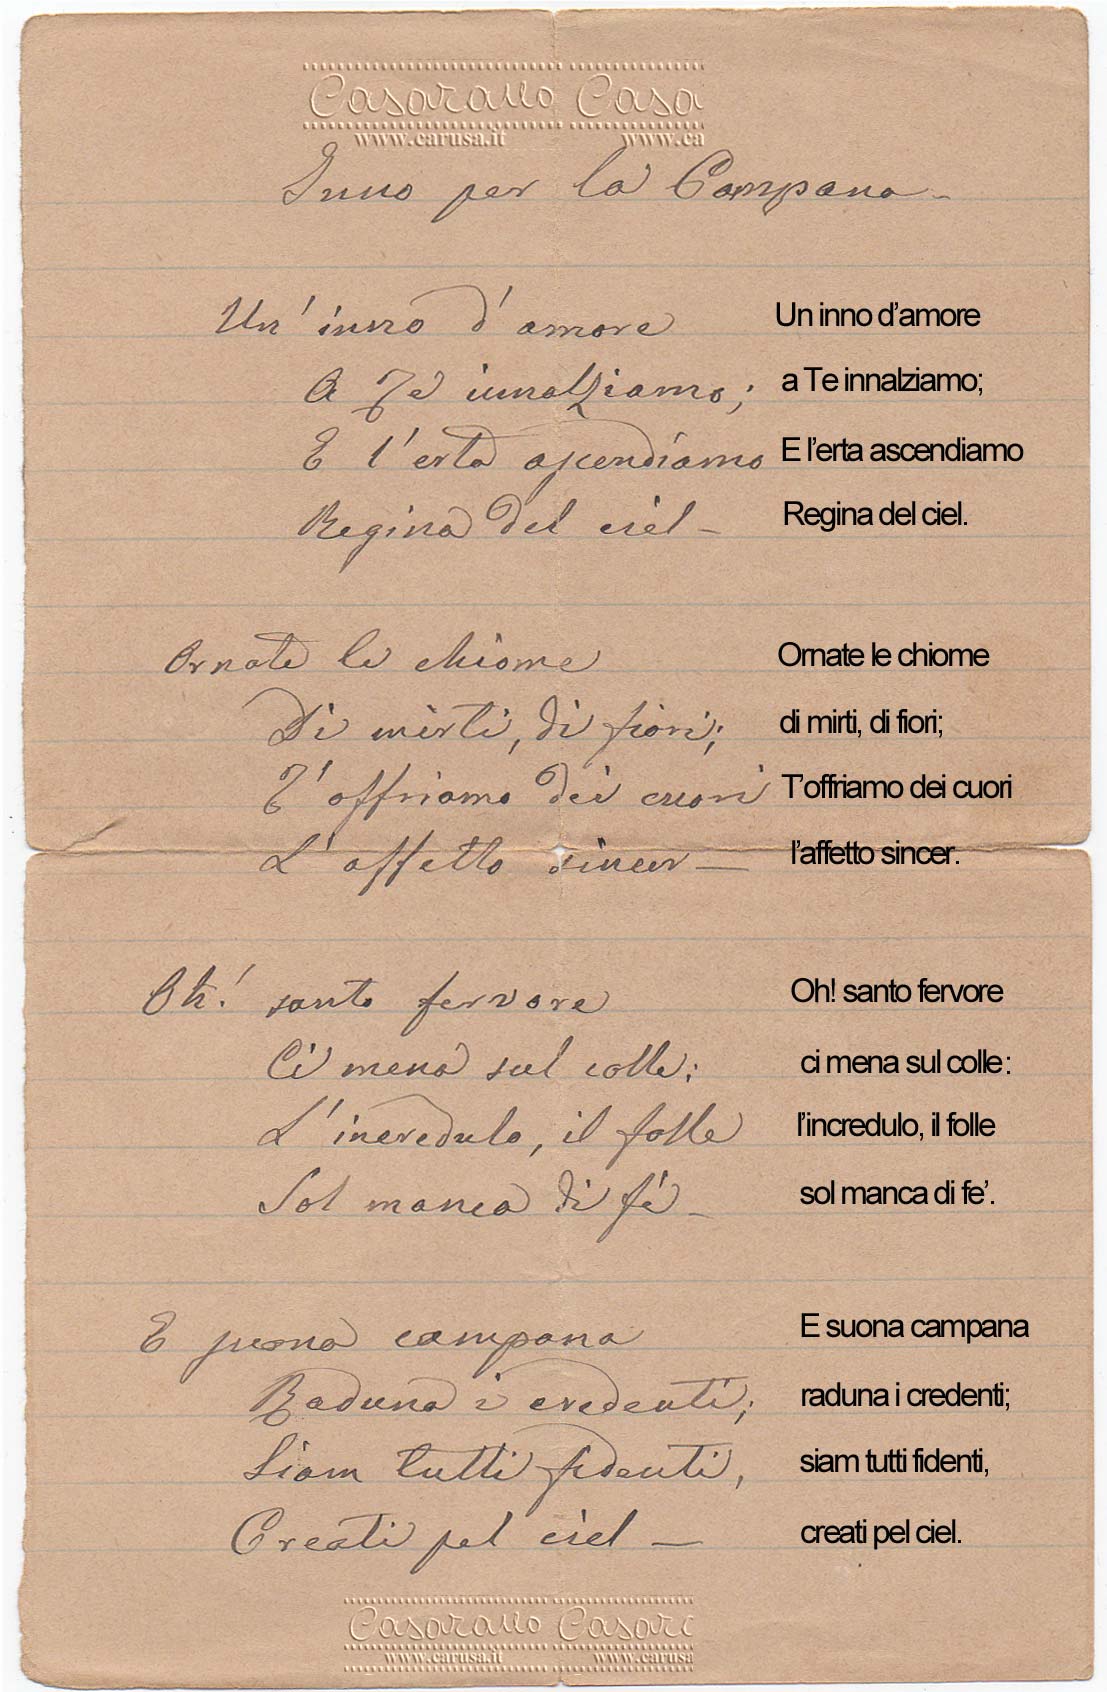 Casarano Casa
www.carusa.it www.ca
Inno per la Campana -
Un' inno d'amore Un inno d'amore
A Te innalziamo; a Te innalziamo;
E l'erta ascendiamo E l'erta ascendiamo
Regina del ciel - Regina del ciel.
Ornate le chiome Ornate le chiome
Di mirti, di fiori; di mirti, di fiori;
T'offriamo dei cuori T'offriamo dei cuori
L'affetto sincer - l'affetto sincer.
Oh! santo fervore Oh! santo fervore
Ci mena sul colle: ci mena sul colle:
L'incredulo, il folle l'incredulo, il folle
Sol manca di fé - sol manca di fe'.
E suona campana E suona campana
Raduna i credenti; raduna i credenti;
Siam tutti fidenti, siam tutti fidenti,
Creati pel ciel - creati pel ciel.
Casarano Casar
www.carusa.it www.carusa